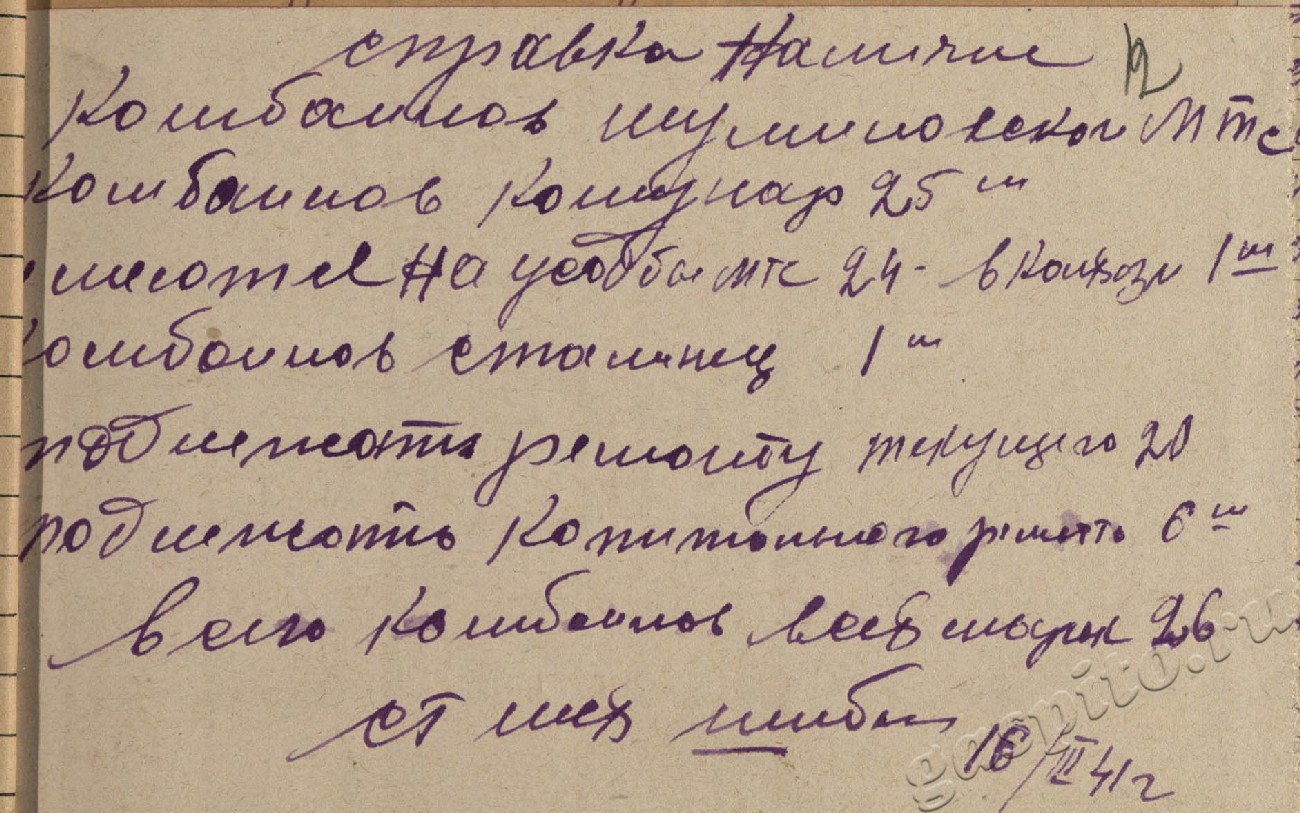 справка Наличие
12
комбаинов шумиловской МТС
комбаинов комунар 25 ш
имеютсе на усадбы мтс 24 - в колхози 1 ш
комбоинов сталинец 1 ш
подлежать ремонту текущего 20
подлежать копитольного ремонта 6 ш
всего комбоинов всех марок 26
ст мех
16/III 41 г
gaspito.ru